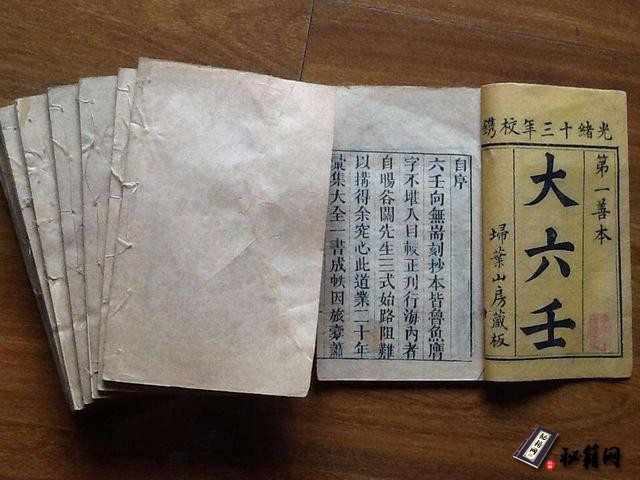 光緒十三年校鐫
第一善本
大六壬
埽葉山房藏板
自序
六壬向無耑刻抄本皆魯魚
字不堪入目較正刊行海內者
自暘谷闗先生三式始路阻難
以搆得余究心此道業二十年
彚集大全一書成帙因旅橐蕭
秘籍网
秘籍网